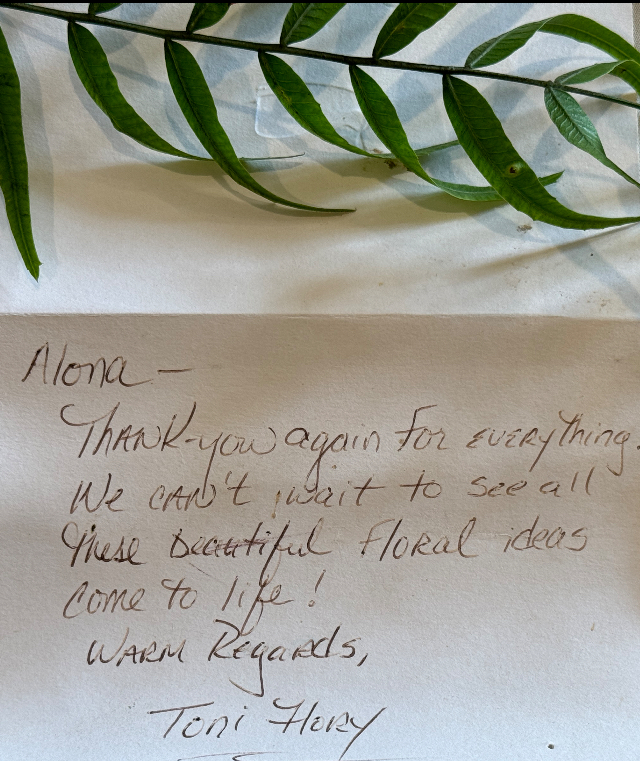 Alona —
Thank-you again for everything.
We can't wait to see all
these beautiful floral ideas
come to life!
Warm Regards,
Toni Flory